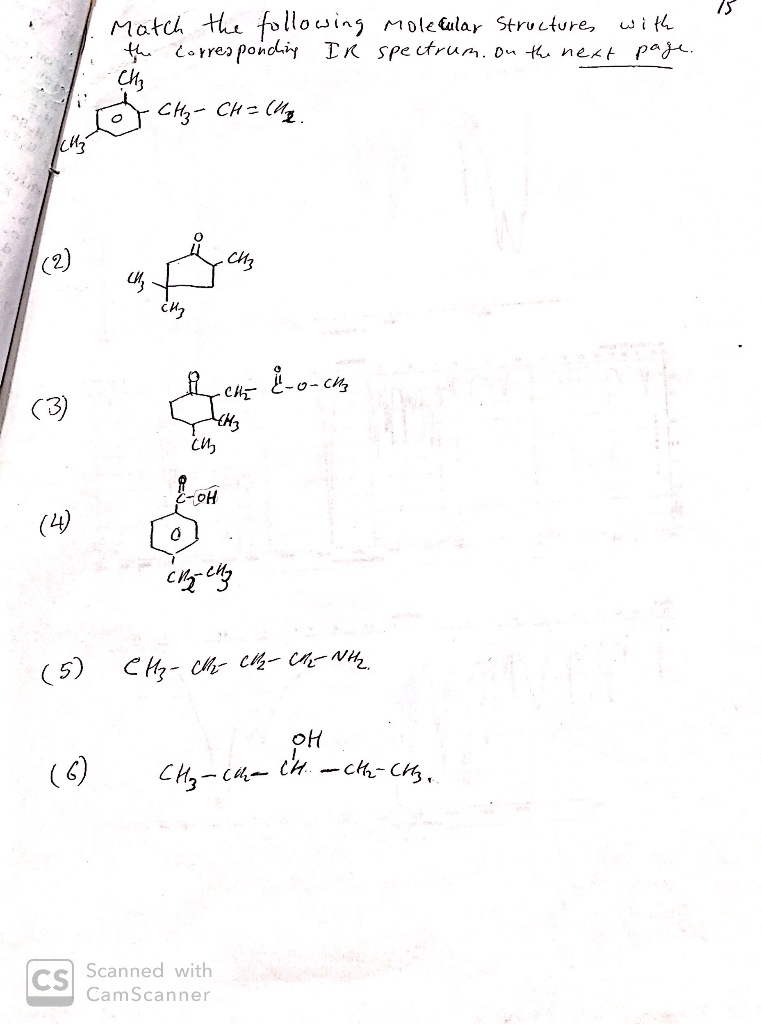 15
Match the following Molecular Structures with
the corresponding IR spectrum. On the next page.
CH3
CH3- CH = CH2.
CH3
(2)
O
CH3
CH3
CH3
(3)
O
O
CH2- C-O-CH3
CH3
CH3
(4)
O
C-OH
CH2-CH3
(5) CH3- CH2- CH2- CH2-NH2.
OH
(6) CH3-CH2- CH - CH2-CH3.
CS Scanned with
CamScanner